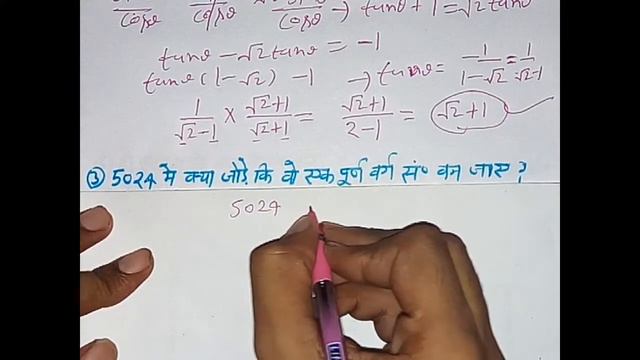 cosθ cosθ cosθ → tanθ + 1 = √2 tanθ
tanθ - √2 tanθ = -1
tanθ (1 - √2) - 1 → tanθ = -1/1-√2 = 1/√2-1
1/√2-1 × √2+1/√2+1 = √2+1/2-1 = √2+1
③ 5024 मे क्या जोड़े कि वो एक पूर्ण वर्ग सं० बन जाए ?
5024